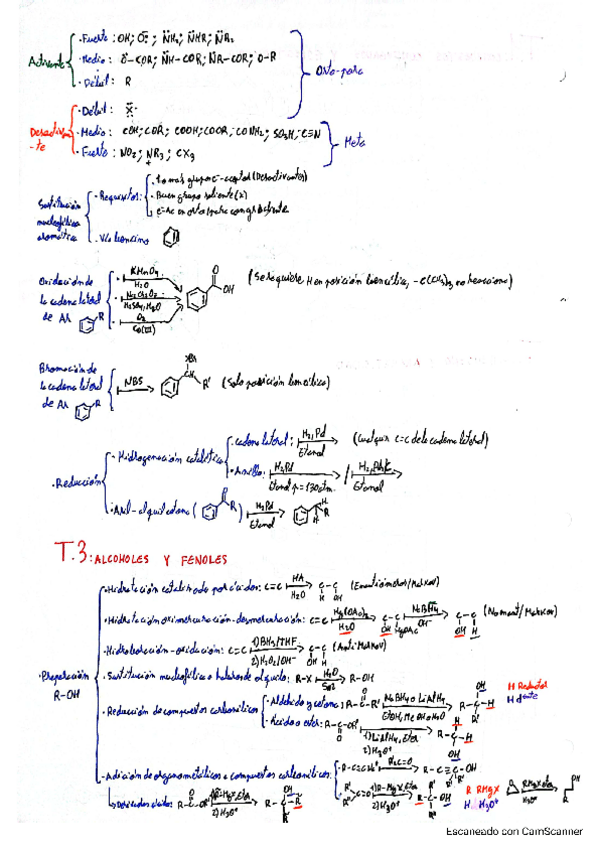 Activante
· Fuerte : OH; O⁻ ; NH₂; NHR; NR₂
· Medio: O-COR; NH-COR; NR-COR; O-R
· Débil: R
Orto-para
Desactivan-te
· Débil : X
· Medio: COH; COR; COOH; COOR, CONH₂; SO₃H; C≡N
· Fuerte : NO₂; NR₃; CX₃
+
Meta
Sustitución nucleofílica aromática
· Requisitos:
· Buen grupo saliente (X)
· Vía bencino
Oxidación de la cadena lateral de Ar
R
KMnO₄
H₂O
Na₂Cr₂O₇
H₂SO₄, H₂O
O₂
Co(III)
O
OH
(Se requiere H en posición bencílica, -C(CH₃)₃ no reacciona)
Bromación de la cadena lateral de Ar
R
NBS
Br
CH
R'
(Solo posición bencílica)
· Reducción
· Hidrogenación catalítica
· cadena lateral:
H₂, Pd
Etanol
(Cualquier C=C de la cadena lateral)
· Anillo:
H₂, Pd
Etanol p = 130 atm
Etanol
· Aril-alquilcetona
O
R
H₂, Pd
Etanol
H
R
H
T.3: ALCOHOLES Y FENOLES
· Preparación R-OH
· Hidratación catalizada por ácidos: C=C
HA
H₂O
C-C
H OH
(Enantiómeros/Markov)
· Hidratación oximercuración-desmercuración: C=C
Hg(OAc)₂
H₂O
C-C
OH HgOAc
NaBH₄
OH⁻
C-C
OH H
· Hidroboración-oxidación: C=C
1) BH₃/THF
2) H₂O₂/OH⁻
C-C
H OH
(Anti Markov)
· Sustitución nucleofílica a haluros de alquilo: R-X
H₂O
SN2
R-OH
· Reducción de compuestos carbonílicos
· Aldehído y cetona: R-C-R'
O
NaBH₄ o LiAlH₄
EtOH, MeOH o H₂O
OH
R-C-H
R'
H Reductor
· Ácido o ester: R-C-OR'
O
1) LiAlH₄, Eter
2) H₃O⁺
H
R-C-H
OH
· Adición de organometálicos a compuestos carbonílicos:
R-C≡C-C-OH
R'
C=O
1) R-MgX, Eter
2) H₃O⁺
R'
R-C-OH
R''
R RMgX
H H₃O⁺
RMgX, Eter
H₃O⁺
OH
R
Derivados ácidos: R-C-OR'
O
1) R-MgX, Eter
2) H₃O⁺
OH
R-C-R
R
Escaneado con CamScanner